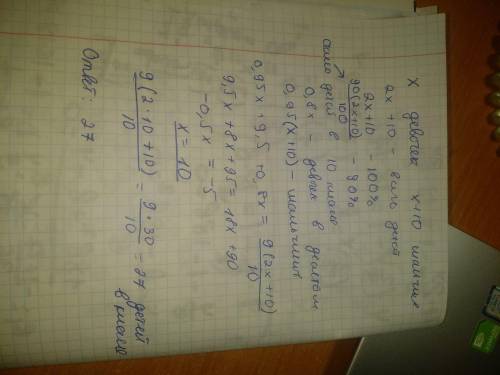 X девочек x+10 мальчик
2x+10 - всего детей
2x+10 - 100%
90(2x+10)/100 - 90%
стало детей в 10 классе
0,8x - девочек в десятом
0,95(x+10) - мальчиков
0,95x+9,5+0,8x = 9(2x+10)/10
9,5x+8x+95=18x+90
-0,5x=-5
x=10
9(2·10+10)/10 = 9·30/10 = 27 детей
в классе
Ответ: 27